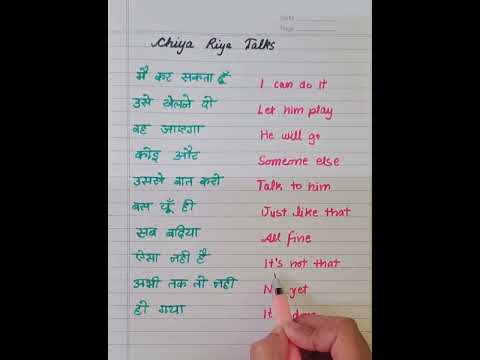 Date
Page
Chiya Riya Talks
मै कर सकता हूँ I can do it
उसे खेलने दो Let him play
वह जाएगा He will go
कोइ और Someone else
उससे बात करो Talk to him
बस यूँ ही Just like that
सब बढिया All fine
ऐसा नही है It's not that
अभी तक तो नही yet
हो गया It